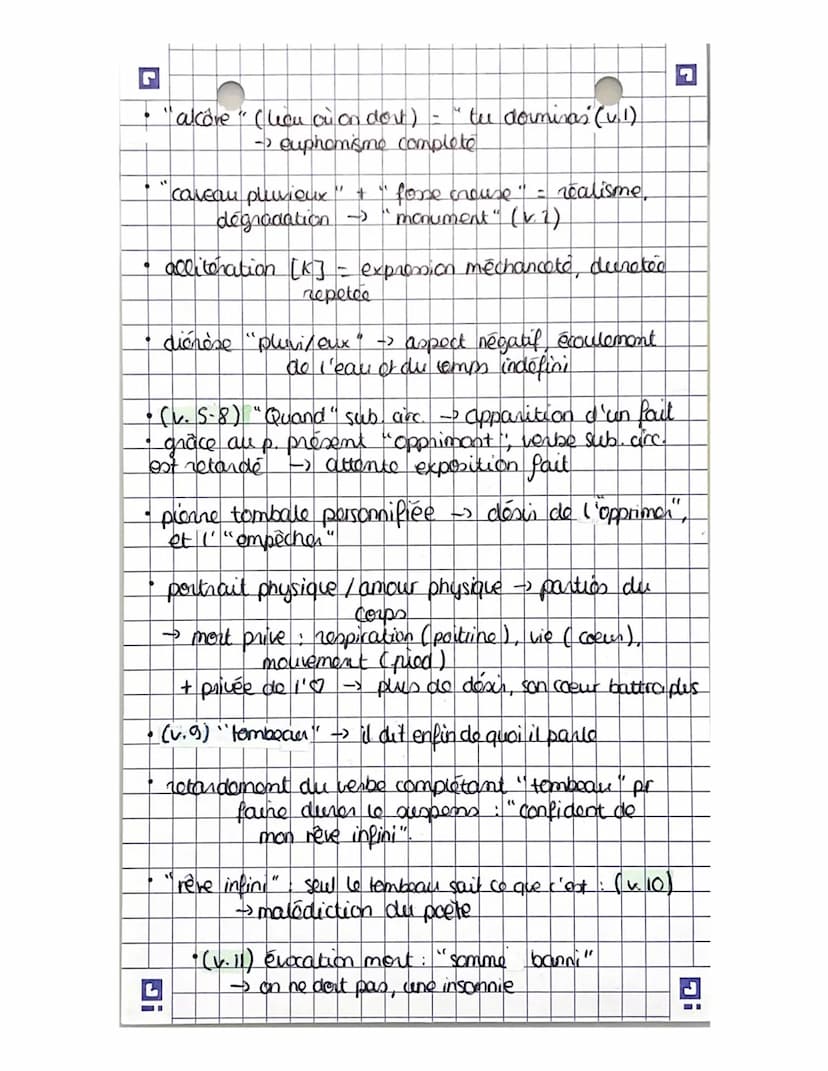 • "alcôve" (lieu où on dort) = "tu dormiras" (v.1)
-> euphémisme complété
• "caveau pluvieux" + "fosse creuse" = réalisme,
dégradation -> "monument" (v.2)
• allitération [K] = expression méchanceté, dureté
repetée
• diérèse "pluvi/eux" -> aspect négatif, écoulement
de l'eau et du temps indéfini
• (v. 5-8) "Quand" sub. circ. -> apparition d'un fait
• grâce au p. présent "opprimant", verbe sub. circ.
est retardé -> attente exposition fait
• pierre tombale personnifiée -> désir de l'"opprimer",
et l'"empêcher"
• portrait physique / amour physique -> parties du
corps
-> mort prive : respiration (poitrine), vie (coeur),
mouvement (pied)
+ privée de l'♡ -> plus de désir, son coeur battra plus
• (v.9) "tombeau" -> il dit enfin de quoi il parle
• retardement du verbe complétant "tombeau" pr
faire durer le suspens : "confident de
mon rêve infini".
• "rêve infini" : seul le tombeau sait ce que c'est : (v.10)
-> malédiction du poète
• (v.11) évocation mort : "somme banni"
-> on ne dort pas, une insomnie